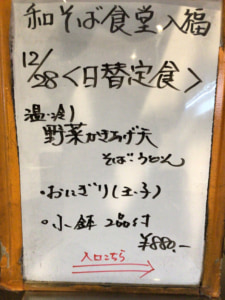 和そば食堂 入福
12/28<日替定食>
温・冷
野菜かきあげ天
そば・うどん
・おにぎり(玉子)
・小鉢 2品付
¥880.-
入口こちら